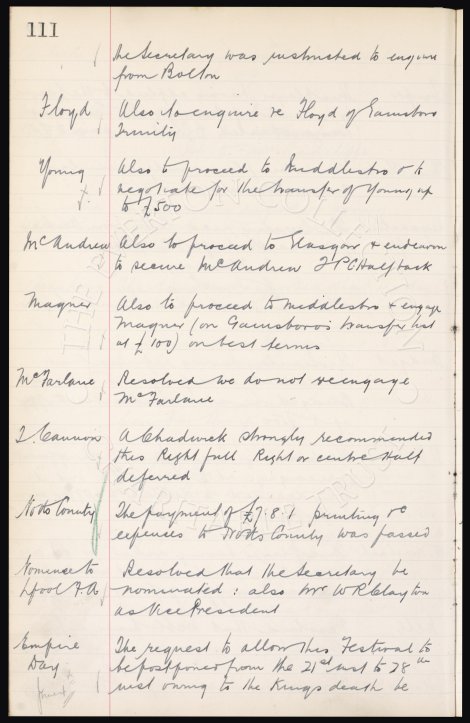 111
the Secretary was instructed to enquire
from Bolton
Floyd Also to enquire re Floyd of Gainsboro
Trinity
Young Also to proceed to Middlesbro & to
negotiate for the transfer of Young up
to £500
McAndrew Also to proceed to Glasgow & endeavor
to secure McAndrew Half back
Magner Also to proceed to Middlesbro & engage
Magner (on Gainsboro's transfer list
at £100) on best terms
McFarlane Resolved we do not reengage
McFarlane
Cannon A Chadwick strongly recommended
this Right full Right or centre Half
deferred
Notts County The payment of £7.8.1 printing &c
expenses to Notts County was passed
Nominee to Resolved that the Secretary be
L'pool F.A. nominated: also Mr W R Clayton
as Vice President
Empire The request to allow this Festival to
Day be postponed from the 21st inst to 28th
inst owing to the Kings death be